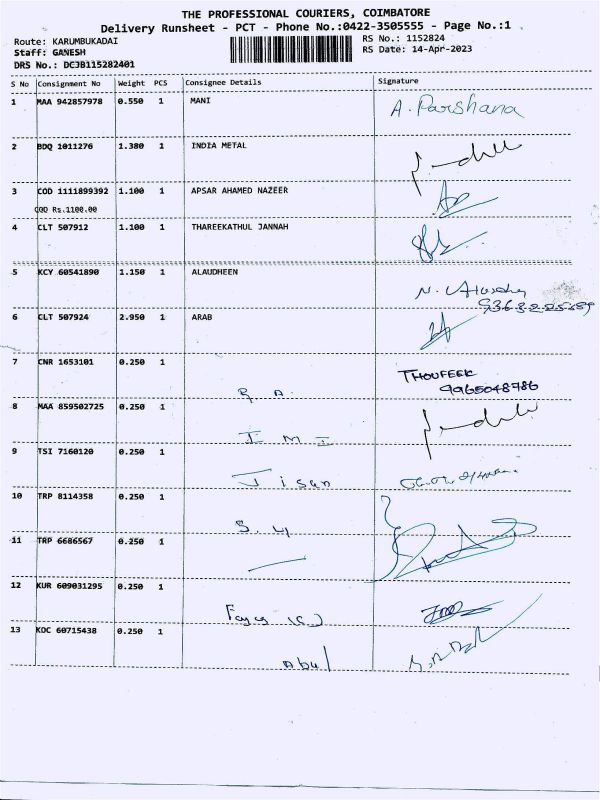 THE PROFESSIONAL COURIERS, COIMBATORE
Delivery Runsheet - PCT - Phone No.:0422-3505555 - Page No.:1
Route: KARUMBUKADAI RS No.: 1152824
Staff: GANESH RS Date: 14-Apr-2023
DRS No.: DCJB115282401
S No Consignment No Weight PCS Consignee Details Signature
1 MAA 942857978 0.550 1 MANI A. Parshana
2 BDQ 1011276 1.380 1 INDIA METAL
3 COD 1111899392 1.100 1 APSAR AHAMED NAZEER
COD Rs.1100.00
4 CLT 507912 1.100 1 THAREEKATHUL JANNAH
5 KCY 60541890 1.150 1 ALAUDHEEN
6 CLT 507924 2.950 1 ARAB
7 CNR 1653101 0.250 1 THOUFEEK
R A 9965048786
8 MAA 859502725 0.250 1
I M I
9 TSI 7160120 0.250 1
Jisan
10 TRP 8114358 0.250 1
11 TRP 6686567 0.250 1
12 KUR 609031295 0.250 1
13 KDC 60715438 0.250 1
Abul